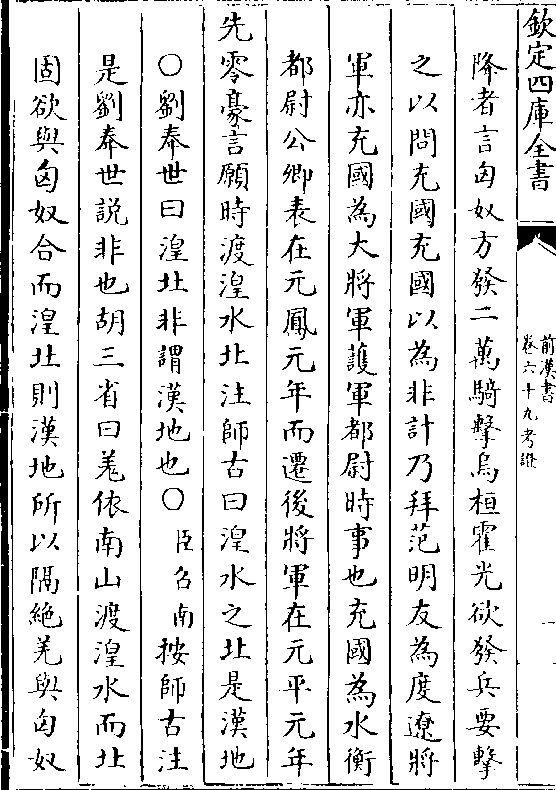 欽定四庫全書
前漢書
卷六十九考證
一
降者言匈奴方發二萬騎擊烏桓霍光欲發兵要擊
之以問充國充國以為非計乃拜范明友為度遼將
軍亦充國為大將軍護軍都尉時事也充國為水衡
都尉公卿表在元鳳元年而遷後將軍在元平元年
先零豪言願時渡湟水北注師古曰湟水之北是漢地
○劉奉世曰湟北非謂漢地也○臣召南按師古注
是劉奉世說非也胡三省曰羌依南山渡湟水而北
固欲與匈奴合而湟北則漢地所以隔絶羌與匈奴